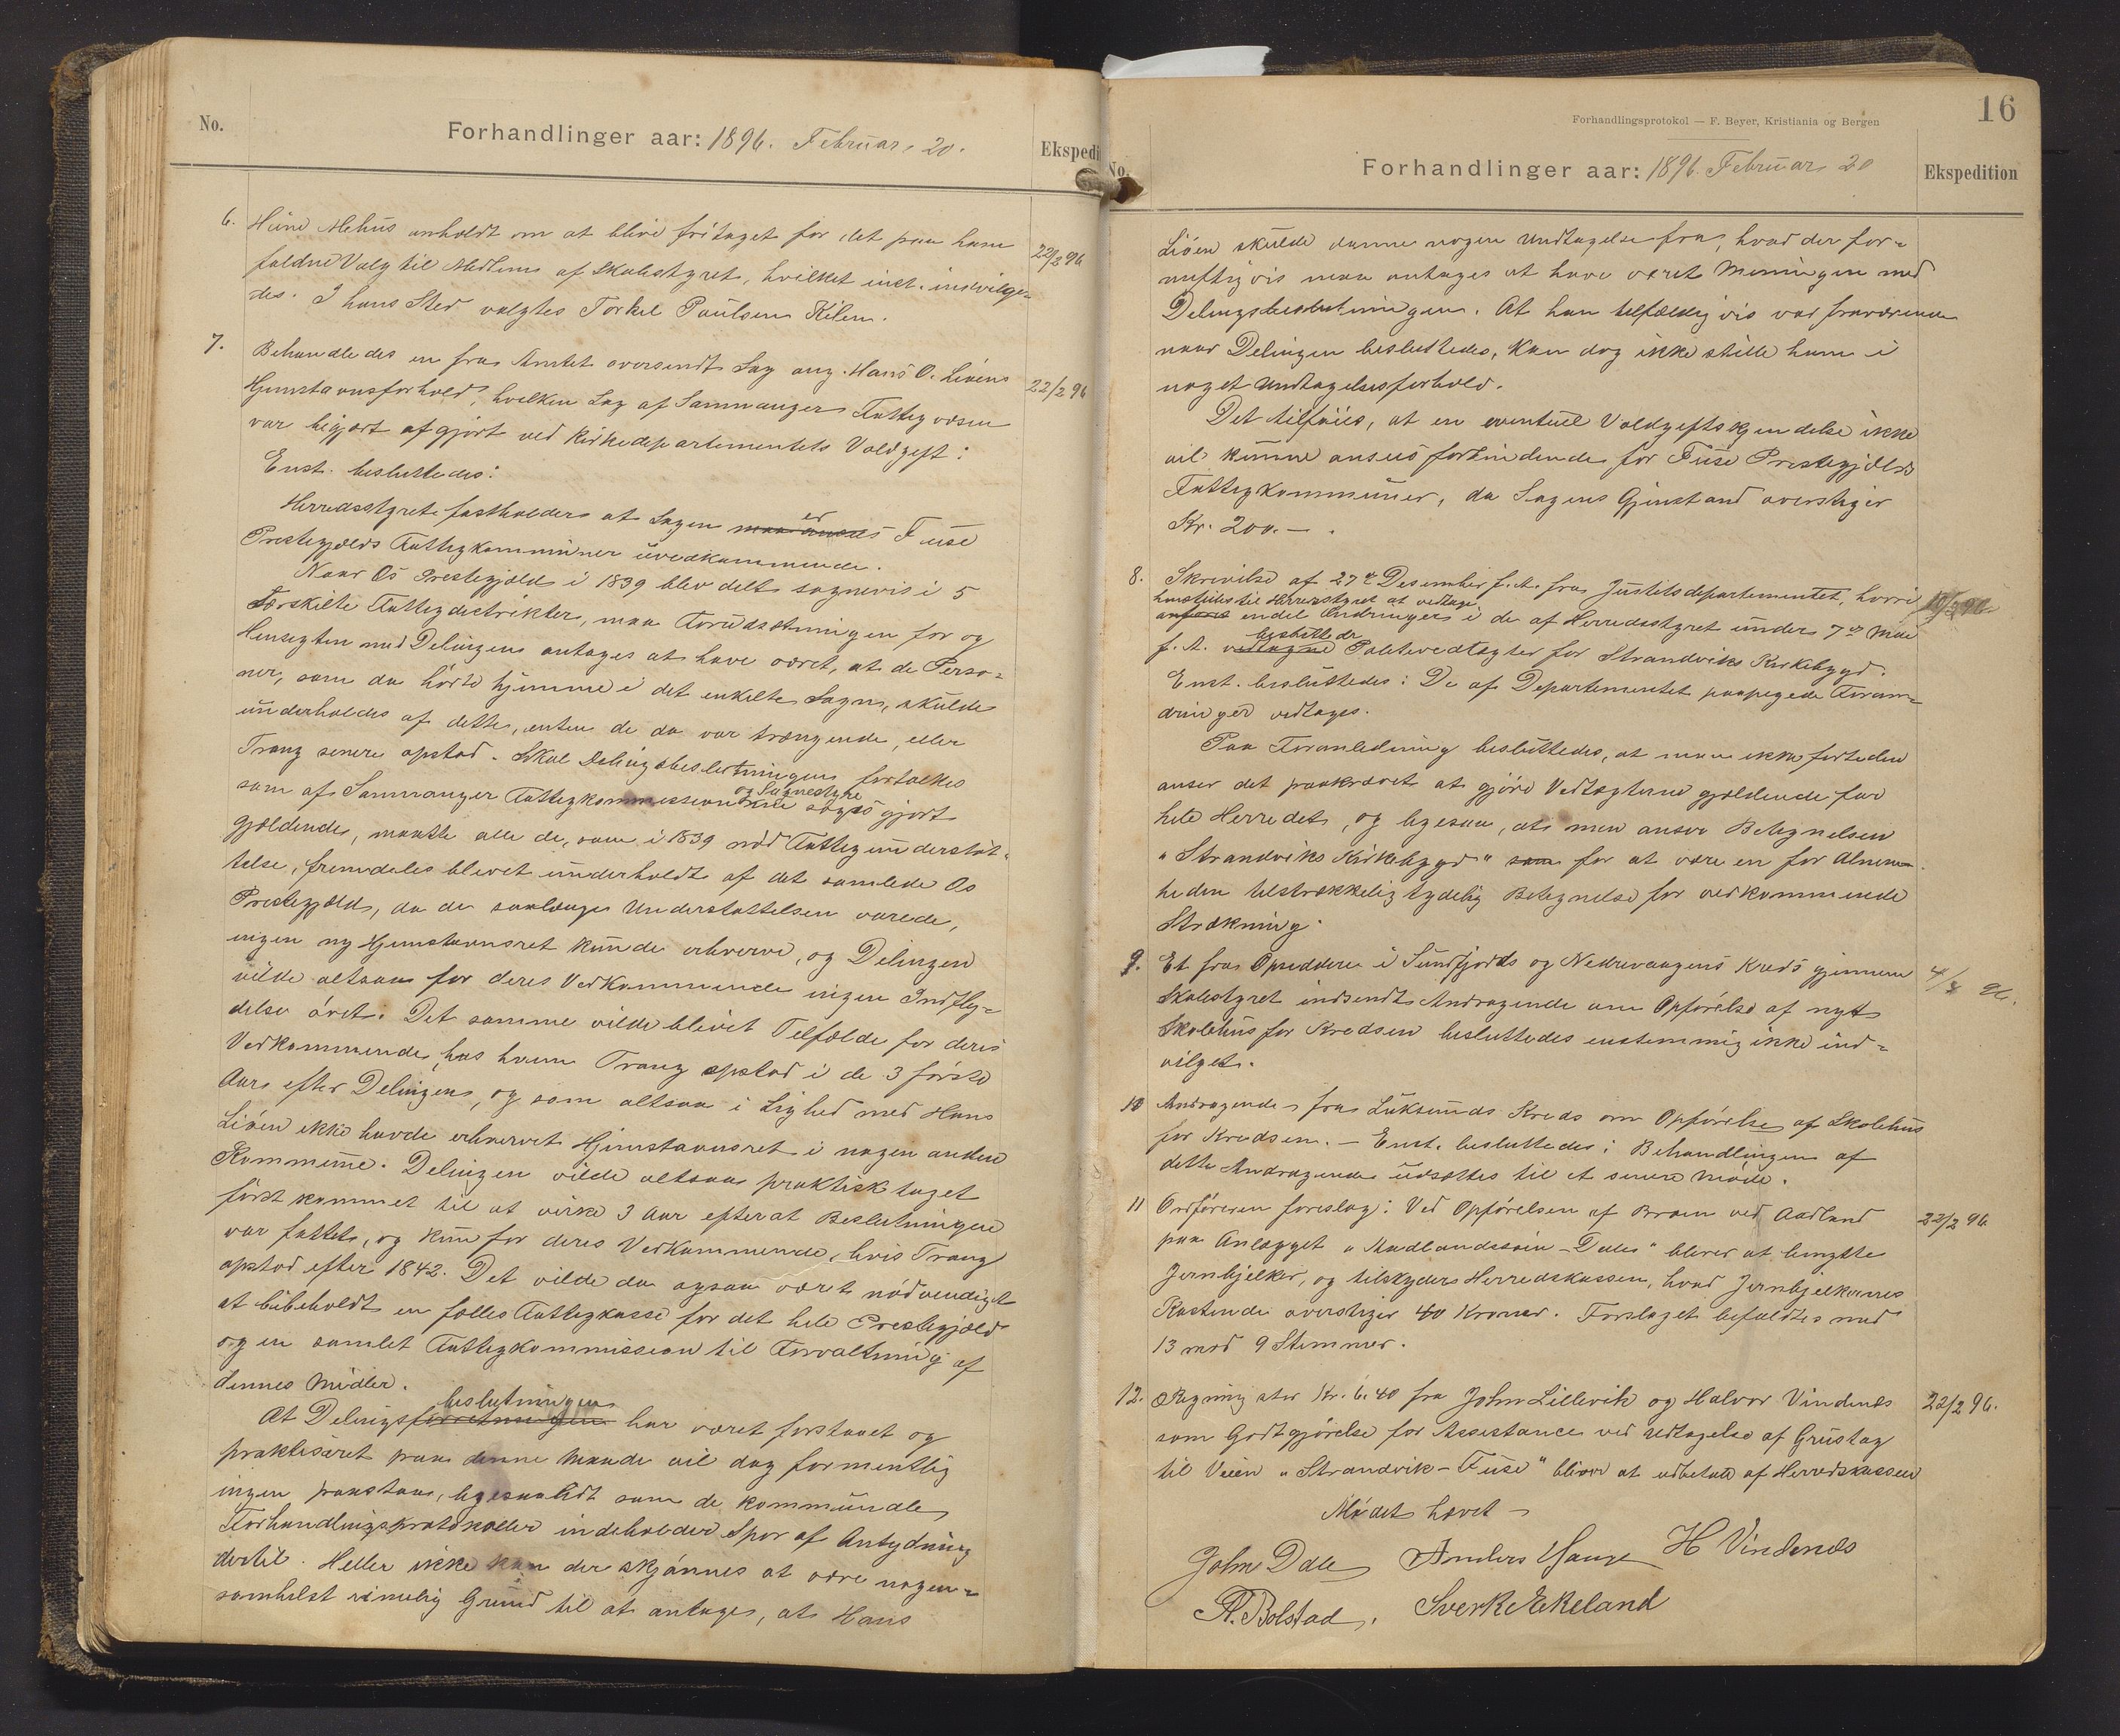 No.
Forhandlinger aar: 1896. Februar 20.
Ekspedi
6. Hans Mehus anholdt om at blive fritaget for det paa ham
faldne Valg til Medlem af Skolestyret, hvilket enst. indvilge-
des. I hans Sted valgtes Torkel Paulsen Kilen.
22/2 96
7. Behandledes en fra Amtet oversendt Sag ang. Hans O. Liøens
Hjemstavnsforhold, hvilken Sag af Samnanger Fattigvæsen
var begjært afgjort ved Kirkedepartementets Voldgift:
22/2 96
Enst. besluttedes:
Herredsstyret fastholder at Sagen er Fuse
Prestegjælds Fattigkommuner uvedkommende.
Naar Os Prestegjæld i 1839 blev delt sognevis i 5
særskilte Fattigdistrikter, maa Forudsætningen for og
Hensigten med Delingen antages at have været, at de Perso-
ner, som da hørte hjemme i det enkelte Sogn, skulde
underholdes af dette, enten de da var trængende, eller
Trang senere opstod. Skal Delingsbeslutningen fortolkes
og Sognestyre
som af Samnanger Fattigkommission søges gjort
gjældende, maatte alle de, som i 1839 nød Fattigunderstøt-
telse, fremdeles blevet underholdt af det samlede Os
Prestegjæld, da de saalænge Understøttelsen varede,
ingen ny Hjemstavnsret kunde erhverve, og Delingen
vilde altsaa for deres Vedkommende ingen Indfly-
delse øvet. Det samme vilde blevet Tilfælde for deres
Vedkommende, hos hvem Trang opstod i de 3 første
Aar efter Delingen, og som altsaa i Lighed med Hans
Liøen ikke havde erhvervet Hjemstavnsret i nogen anden
Kommune. Delingen vilde altsaa praktisk taget
først kommet til at virke 3 Aar efterat Beslutningen
var fattet, og kun for deres Vedkommende, hvis Trang
opstod efter 1842. Det vilde da ogsaa været nødvendigt
at bibeholdt en fælles Fattigkasse for det hele Prestegjæld
og en samlet Fattigkommission til Forvaltning af
dennes Midler.
beslutningen
At Delingsforretningen har været forstaaet og
praktiseret paa denne Maade vil dog formentlig
ingen paastaa, ligesaalidt som de kommunale
Forhandlingsprotokoller indeholder Spor af Antydning
dertil. Heller ikke kan der skjønnes at være nogen-
somhelst rimelig Grund til at antage, at Hans
16
Forhandlingsprotokol — F. Beyer, Kristiania og Bergen
No.
Forhandlinger aar: 1896. Februar 20
Ekspedition
Liøen skulde danne nogen Undtagelse fra, hvad der for-
nuftigvis maa antages at have været Meningen med
Delingsbeslutningen. At han tilfældigvis var fraværende
naar Delingen besluttedes, kan dog ikke stille ham i
noget Undtagelsesforhold.
Det tilføies, at en eventuel Voldgiftskjendelse ikke
vil kunne ansees forbindende for Fuse Prestegjælds
Fattigkommuner, da Sagens Gjenstand overstiger
Kr. 200.—.
8. Skrivelse af 27de Desember f. A. fra Justitsdepartementet, hvori
henstilles til Herredsstyret at vedtage
endel Ændringer i de af Herredsstyret under 7de Mai
besluttede
f. A. vedtagne Politivedtægter for Strandviks Kirkebygd.
Enst. besluttedes: De af Departementet paapegede Foran-
dringer vedtages.
Paa Foranledning besluttedes, at man ikke fortiden
anser det paakrævet at gjøre Vedtægterne gjældende for
hele Herredet, og ligesaa, at man anser Betegnelsen
"Strandviks Kirkebygd" som for at være en for Almen-
heden tilstrækkelig tydelig Betegnelse for vedkommende
Strækning.
9. Et fra Opsiddere i Sundfjords og Nedrevaagens Kreds gjennem
Skolestyret indsendt Andragende om Opførelse af nyt
Skolehus for Kredsen besluttedes enstemmig ikke ind-
vilget.
10 Andragende fra Luksunds Kreds om Opførelse af Skolehus
for Kredsen. — Enst. besluttedes: Behandlingen af
dette Andragende udsættes til et senere Møde.
11 Ordføreren foreslog: Ved Opførelsen af Broen ved Aadland
paa Anlægget "Aadlandssøen – Dalen" bliver at benytte
Jernbjelker, og tilskyder Herredskassen, hvad Jernbjelkernes
Kostende overstiger 40 Kroner. Forslaget bifaldtes med
13 mod 9 Stemmer.
22/2 96
12. Regning stor Kr. 6.40 fra John Lillevik og Halvor Vindenes
som Godtgjørelse for Assistance ved Udtagelse af Grustag
til Veien "Strandvik – Fuse" bliver at udbetale af Herredskassen
22/2 96.
Mødet hævet
John Dale Anders Hauge H Vindenes
A. Bolstad. Sverke Ekeland